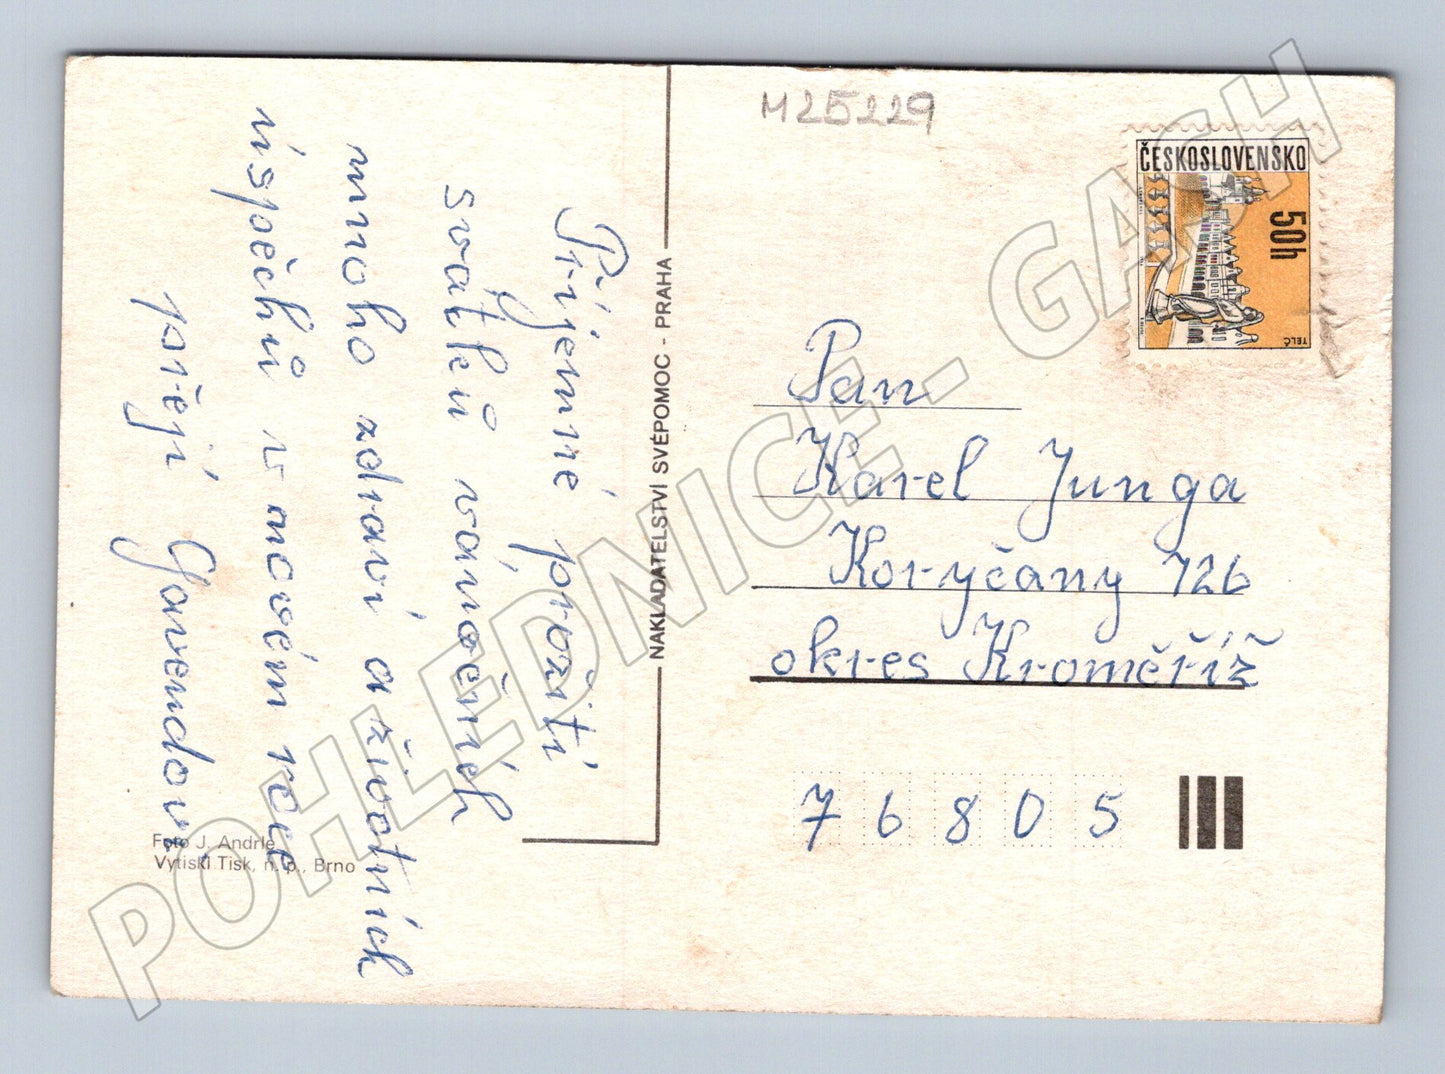 Příjemné prožití
svátků vánočních
mnoho zdraví a životních
úspěchů v novém roce
přejí Gavendovi
Foto J. Andrle
Vytiskl Tisk, n. p., Brno
NAKLADATELSTVÍ SVÉPOMOC - PRAHA
M25229
ČESKOSLOVENSKO
50h
TELČ
Pan
Karel Junga
Koryčany 726
okres Kroměříž
76805
POHLEDNICE - GASH